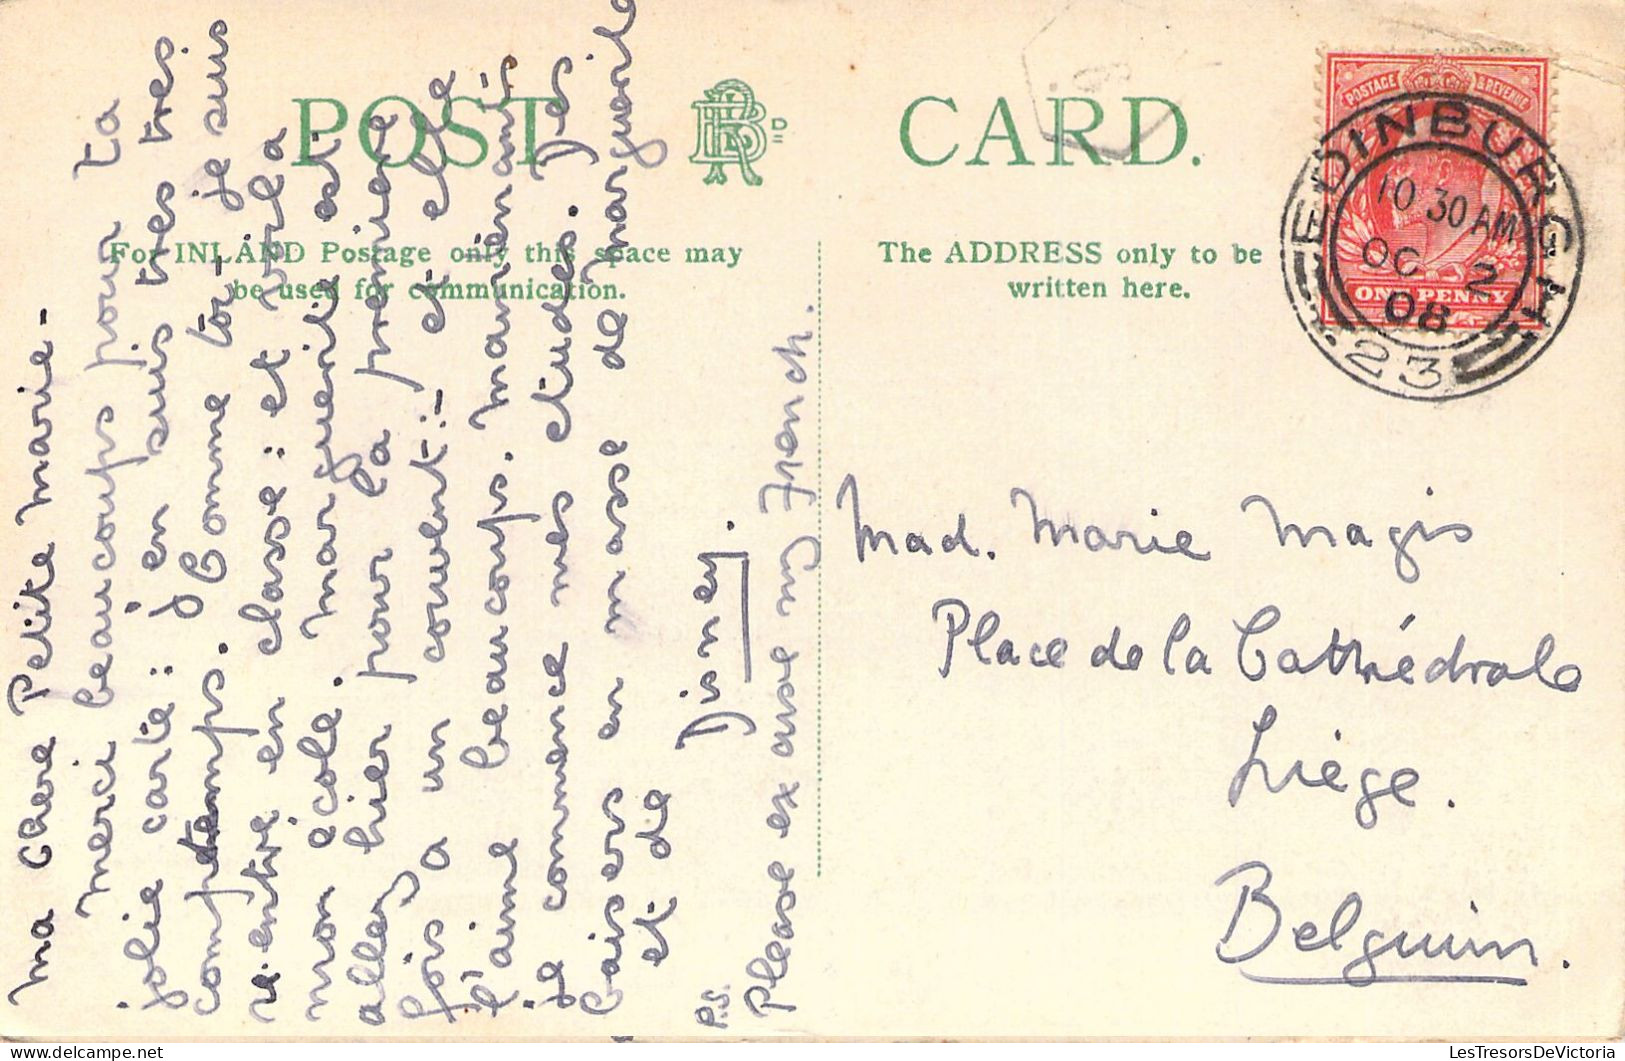 POST CARD.
For INLAND Postage only this space may
be used for communication.
The ADDRESS only to be
written here.
POSTAGE & REVENUE
ONE PENNY
EDINBURGH
10 30 AM
OC 2
08
23
Ma Chere Petite Marie-
Merci beaucoups pour ta
jolie carte: j'en suis tres tres
comptemps. Comme toi- je suis
re-entre en classe: et voila
mon école. Marguerite est
allee hier pour la premiere
fois a un couvent:- et elle
l'aime beaucoups. Maintenant
je commence mes etudes. Des
baisers en masse de Marguerite
et de
Disney.
P.S. Please excuse my French.
Mad. Marie Magis
Place de la Cathédrale
Liège.
Belguim.
LesTresorsDeVictoria